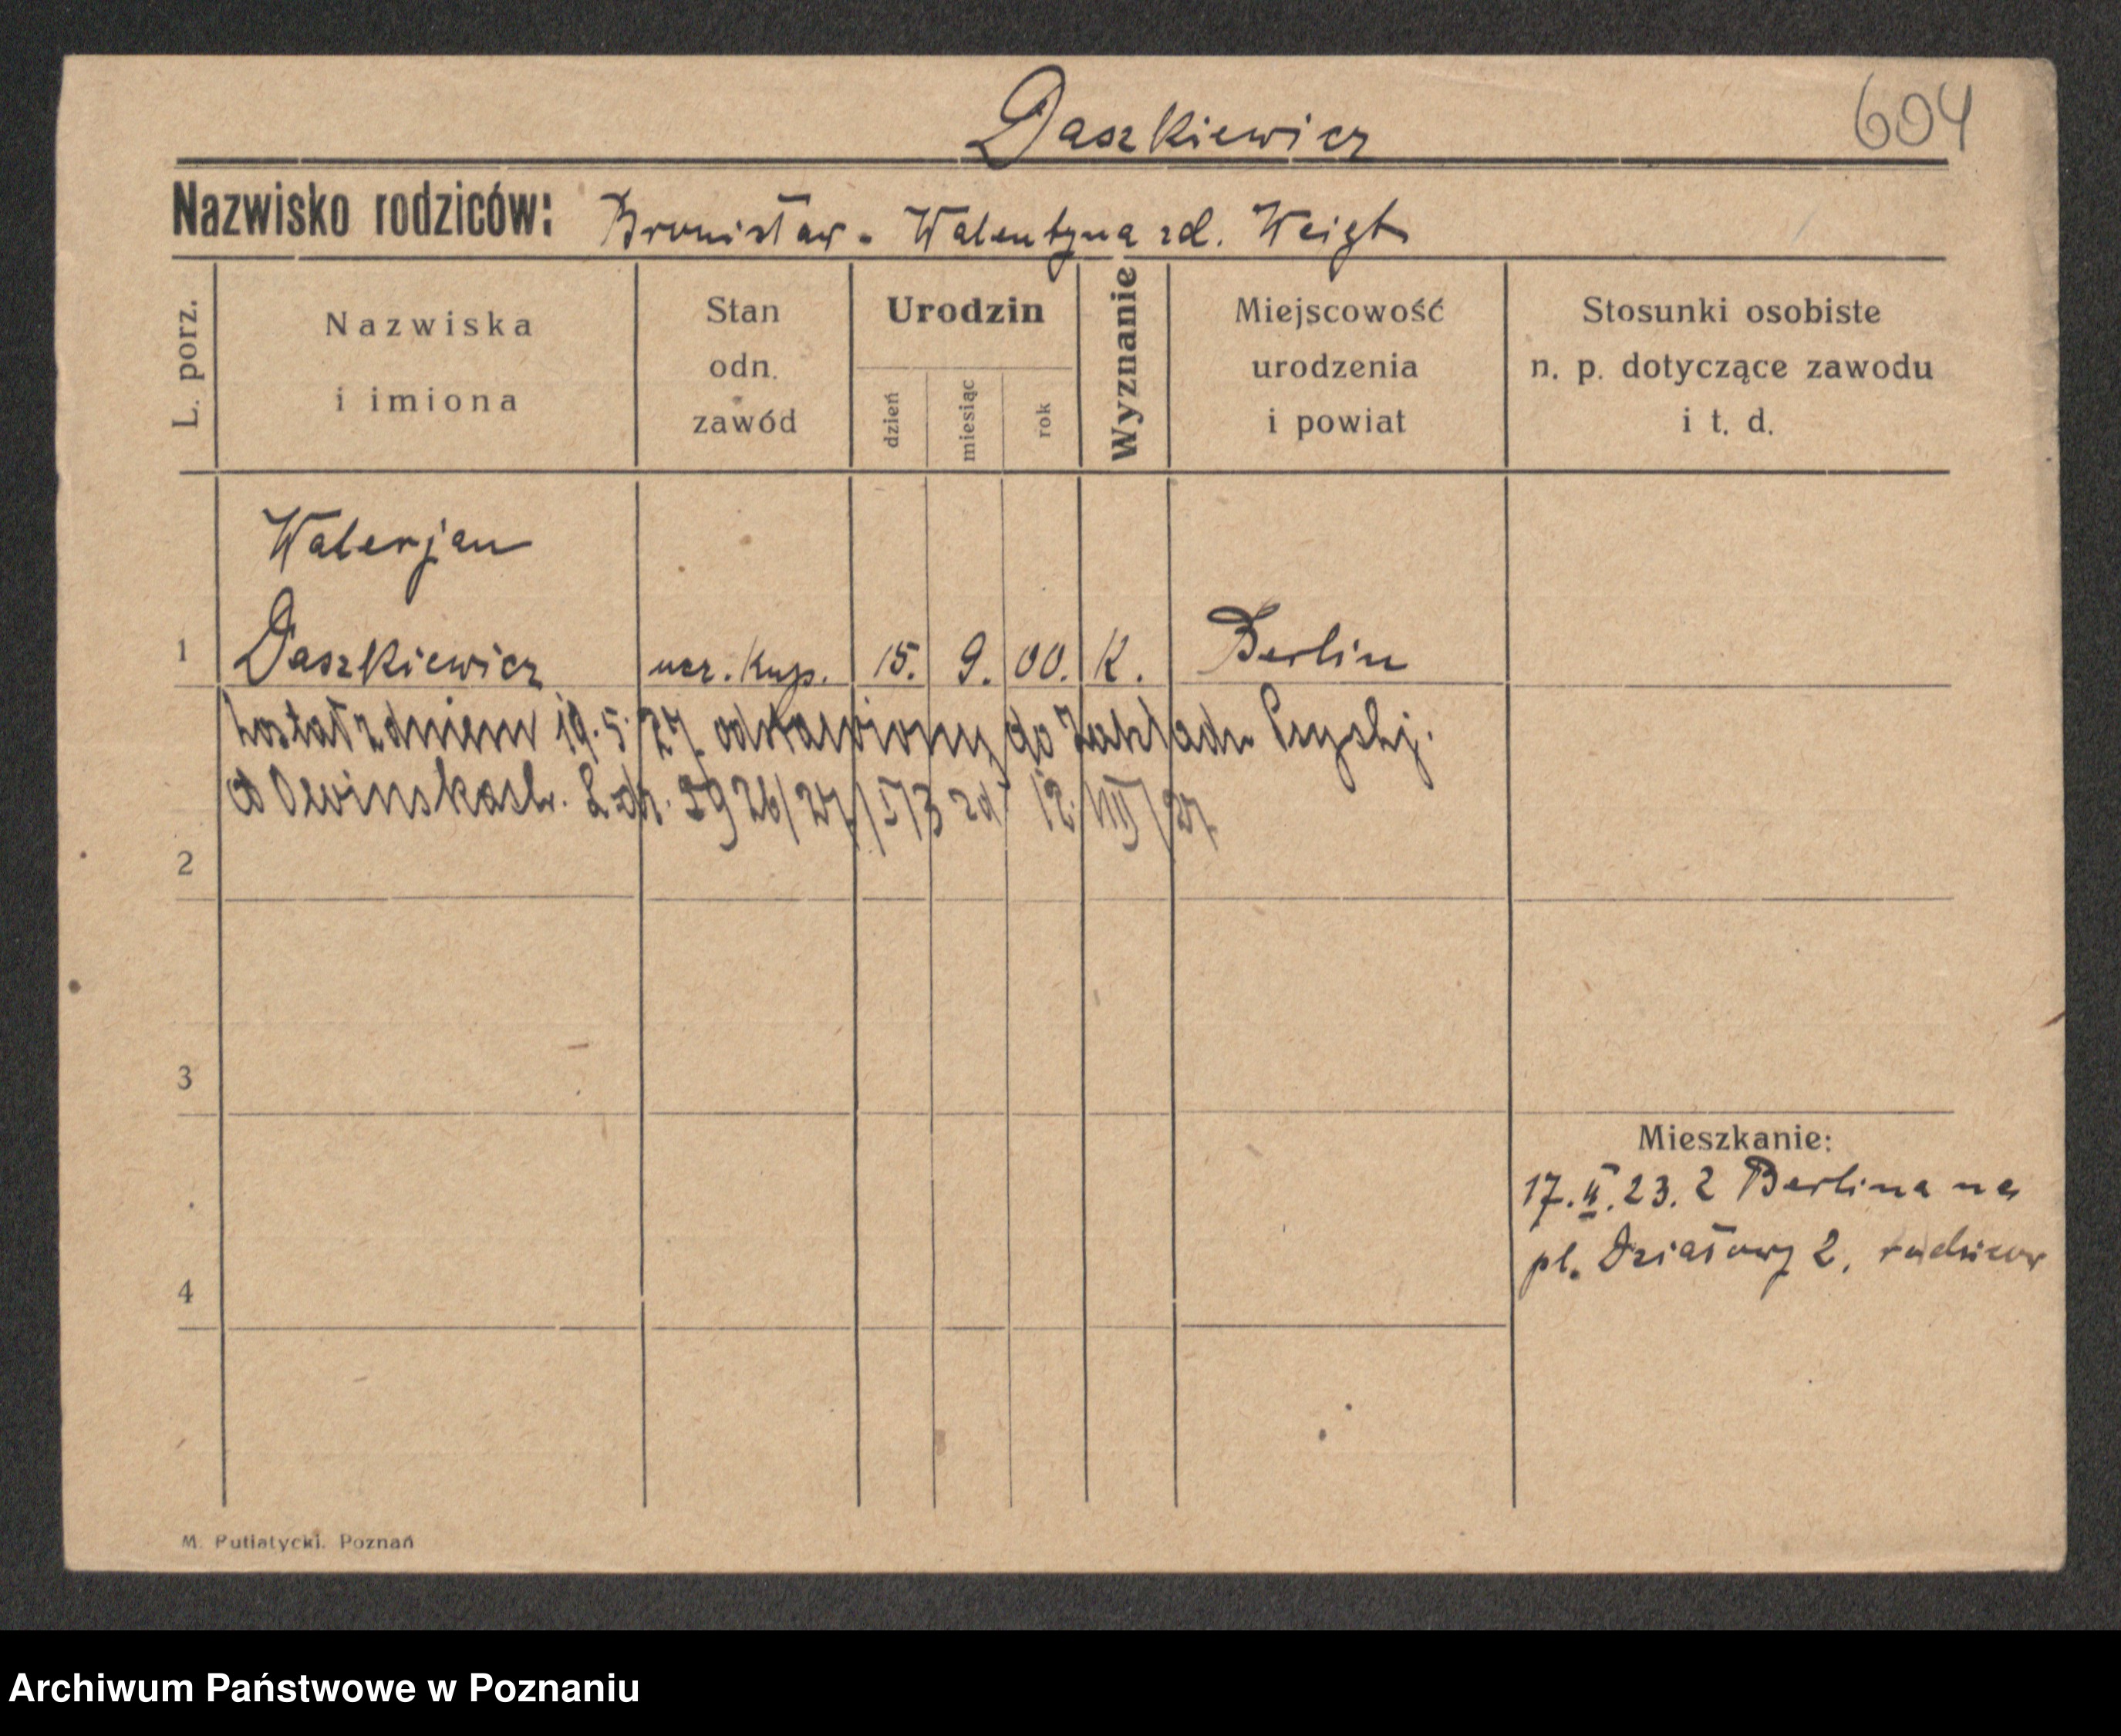 Daszkiewicz
604
Nazwisko rodziców: Bronisław - Walentyna zd. Weigt
L. porz.
Nazwiska
i imiona
Stan
odn.
zawód
Urodzin
dzień
miesiąc
rok
Wyznanie
Miejscowość
urodzenia
i powiat
Stosunki osobiste
n. p. dotyczące zawodu
i t. d.
Walerjan
1 Daszkiewicz ucz. kup. 15. 9. 00. K. Berlin
Został z dniem 19.5.27 odstawiony do Zakładu Psychj.
Owinskach. L.dz. 5926/27/I/3 zd. 12./VII/27
2
3
Mieszkanie:
17.II.23. z Berlina na
pl. Działowy 2, rodziców
4
M. Putiatycki. Poznań
Archiwum Państwowe w Poznaniu